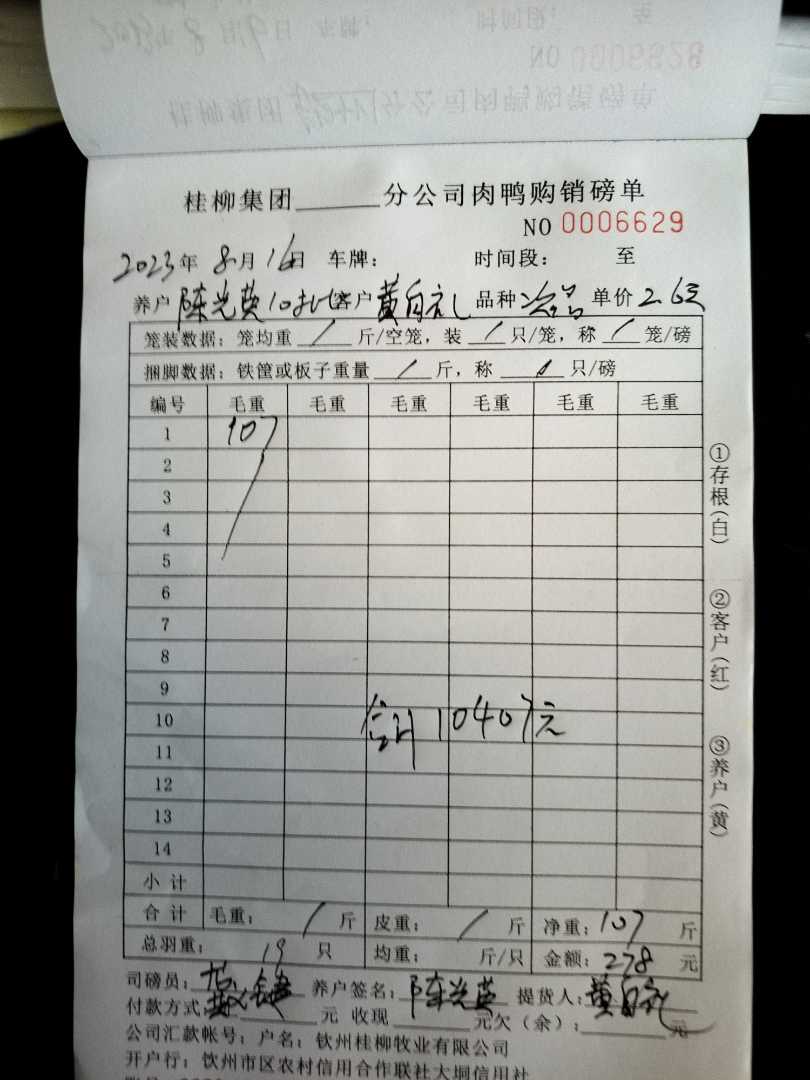 NO 0006628
桂柳集团 分公司肉鸭购销磅单
桂柳集团______分公司肉鸭购销磅单
NO 0006629
2023年 8月16日 车牌： 时间段： 至
养户 陈光英10批 客户 黄自礼 品种 次苗 单价 2.6元
笼装数据：笼均重 / 斤/空笼，装 / 只/笼，称 / 笼/磅
捆脚数据：铁筐或板子重量 / 斤，称 / 只/磅
编号 毛重 毛重 毛重 毛重 毛重 毛重
1 107
2
3
4
5
6
7
8
9
10 合计10407元
11
12
13
14
小计
合计 毛重： / 斤 皮重： / 斤 净重：107 斤
总羽重： 19 只 均重： 斤/只 金额：278 元
司磅员： 养户签名：陈光英 提货人：黄自礼
付款方式： 元 收现 元欠（余）： 元
公司汇款帐号：户名：钦州桂柳牧业有限公司
开户行：钦州市区农村信用合作联社大垌信用社
①存根(白) ②客户(红) ③养户(黄)